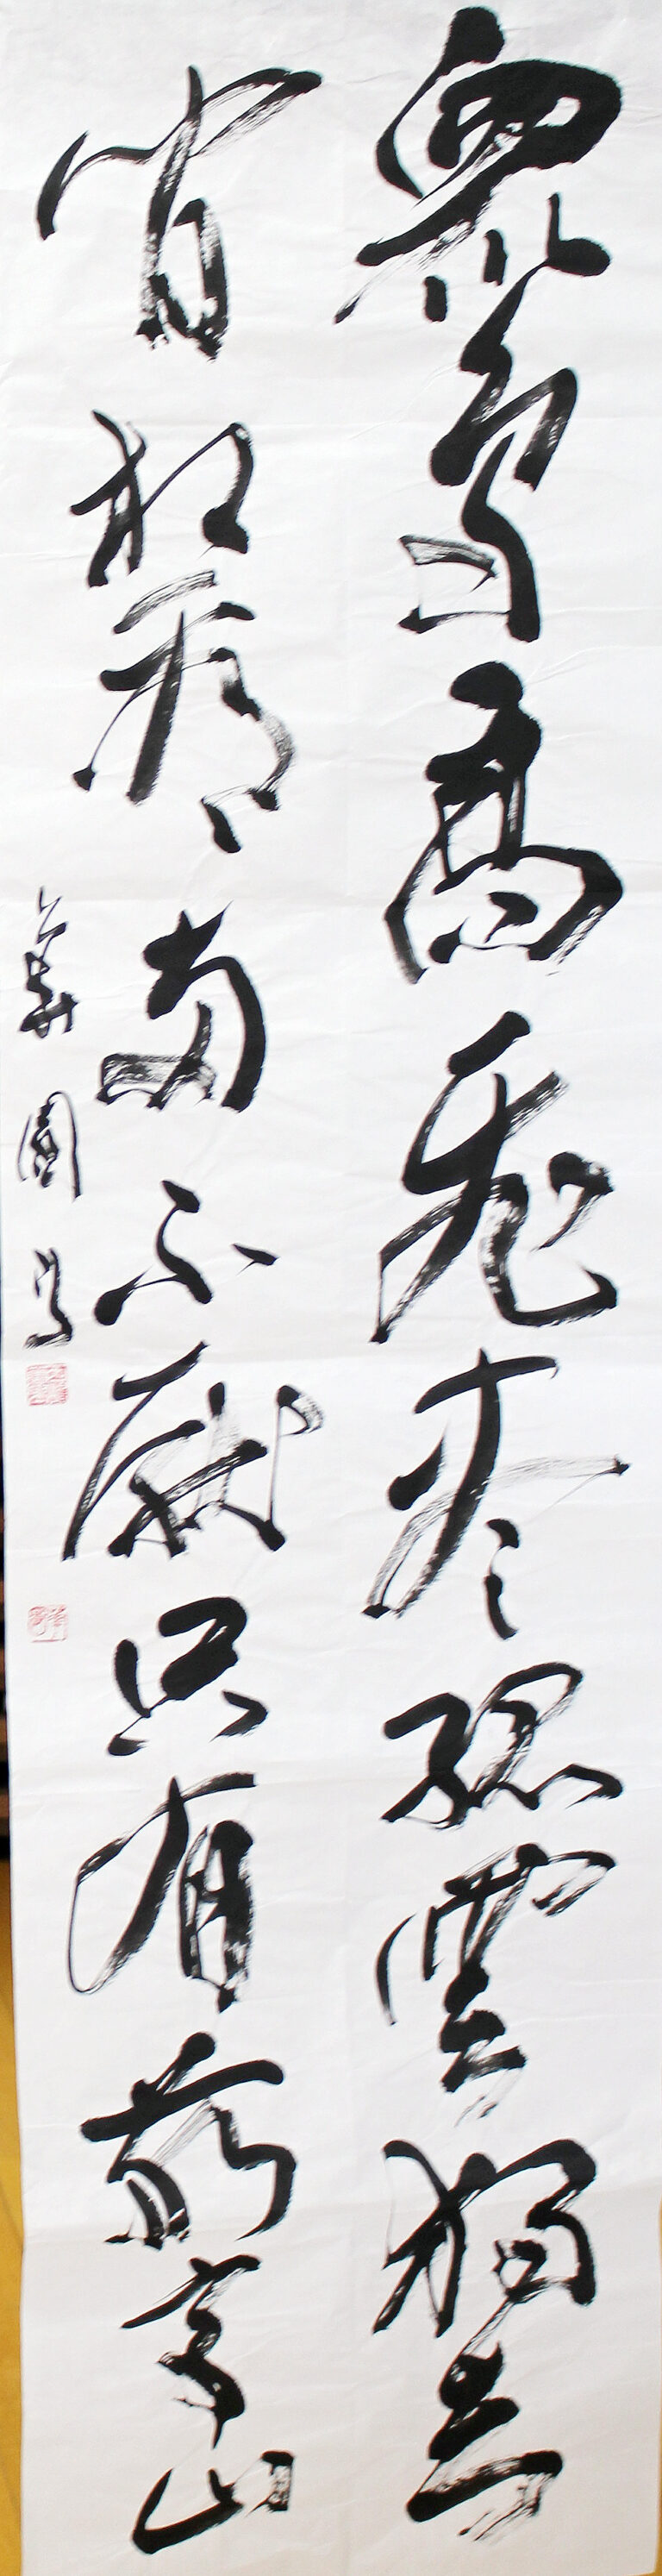 衆鳥高飛盡孤雲獨去
閒相看兩不厭只有敬亭山